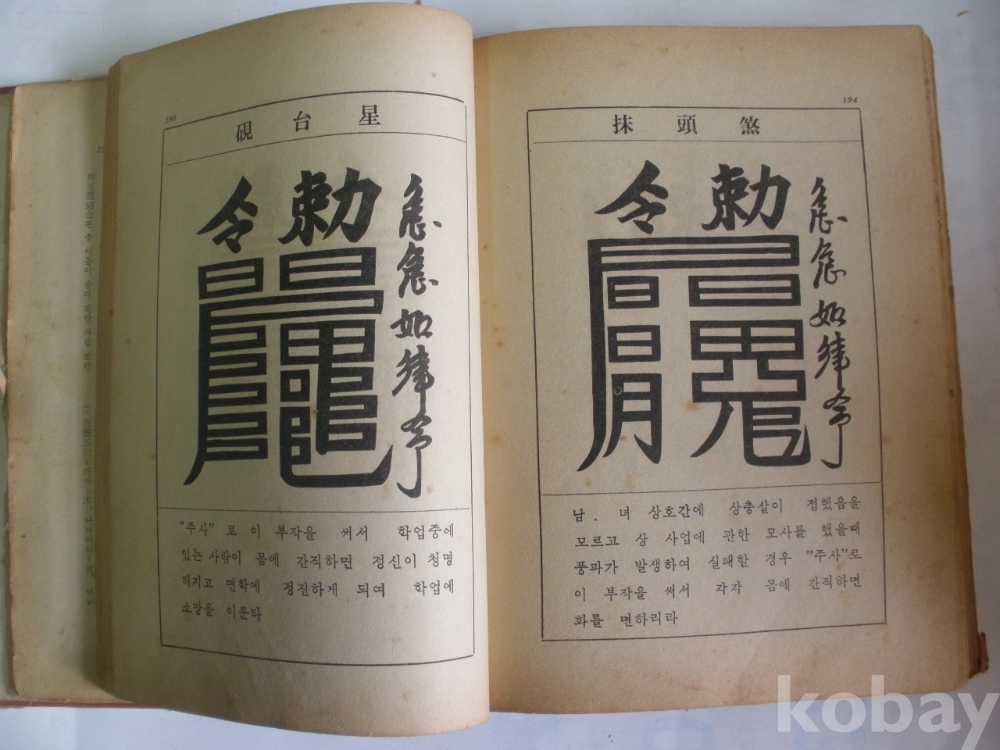 194
煞頭抹
急急如律令
勅令
남 . 녀 상호간에 상충살이 접했음을
모르고 상 사업에 관한 모사를 했을때
풍파가 발생하여 실패할 경우 "주사"로
이 부작을 써서 각각 몸에 간직하면
화를 면하리라
195
星台硯
急急如律令
勅令
"주사" 로 이 부작을 써서 학업중에
있는 사람이 몸에 간직하면 정신이 청명
해지고 면학에 정진하게 되여 학업에
소망을 이룬다
kobay